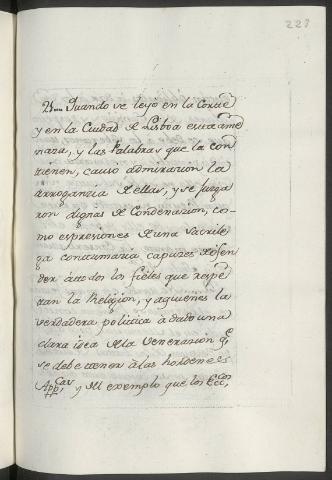 228
21... Quando se leyó en la Corte
y en la Ciudad de Lisboa esta ame
naza, y las Palabras que la con
tienen, causo admiracion la
arroganzia de ellas, y se juzga
ron dignas de Condenazion, co-
mo expresiones de una sacrile
ga contumazia capazes de ofen
der à todos los fieles que respe
tan la Religion, y aquienes la
verdadera politica à dado una
clara idea de la Veneracion q.e
se debe tener à las hordenes
App.cas y del exemplo que los Ecc.cos